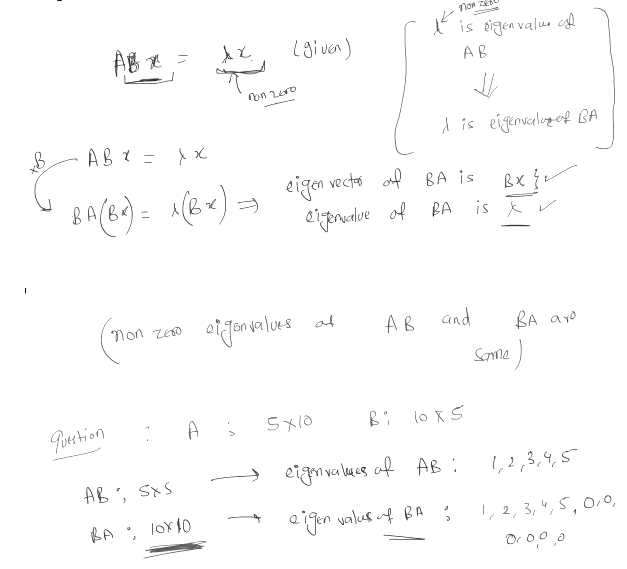 ABx = λx (given)
non zero
non zero
λ is eigenvalue of
AB
⇓
λ is eigenvalue of BA
xB
ABx = λx
BA(Bx) = λ(Bx) ⇒ eigenvector of BA is Bx } ✓
eigenvalue of BA is λ ✓
(non zero eigenvalues of AB and BA are
same)
Question : A : 5x10 B : 10x5
AB : 5x5 → eigenvalues of AB : 1, 2, 3, 4, 5
BA : 10x10 → eigen values of BA : 1, 2, 3, 4, 5, 0, 0,
0, 0, 0